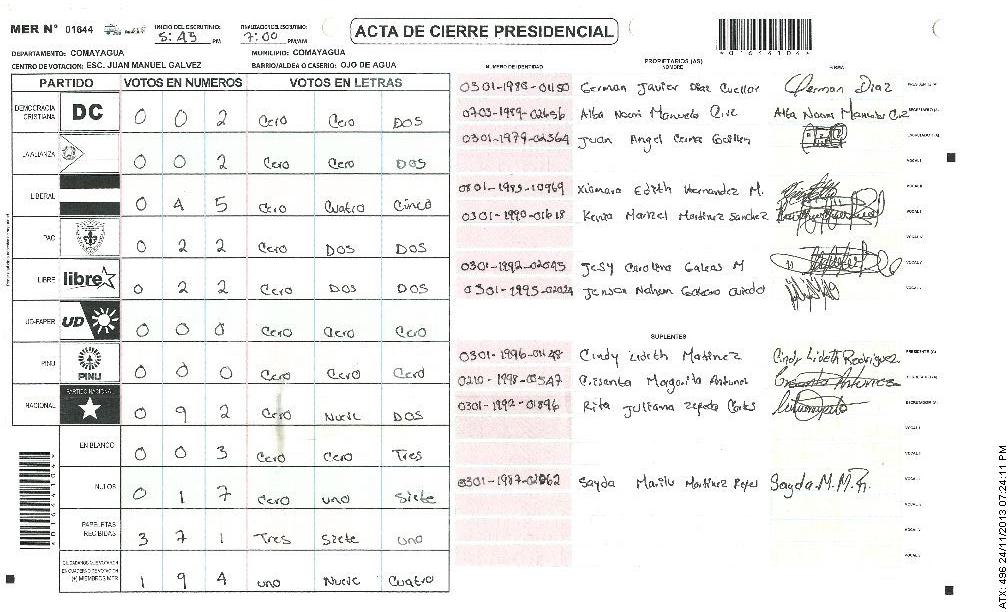 MER N° 01644
INICIO DEL ESCRUTINIO: 5:43 PM
FINALIZACION DEL ESCRUTINIO: 7:00 PM/AM
ACTA DE CIERRE PRESIDENCIAL
DEPARTAMENTO: COMAYAGUA
MUNICIPIO: COMAYAGUA
CENTRO DE VOTACION: ESC. JUAN MANUEL GALVEZ
BARRIO/ALDEA O CASERIO: OJO DE AGUA
PARTIDO VOTOS EN NUMEROS VOTOS EN LETRAS
DEMOCRACIA CRISTIANA DC 0 0 2 Cero Cero DOS
LA ALIANZA 0 0 2 Cero Cero DOS
LIBERAL 0 4 5 Cero Cuatro Cinco
PAC 0 2 2 Cero DOS DOS
LIBRE libre 0 2 2 Cero DOS DOS
UD-FAPER UD 0 0 0 Cero Cero Cero
PINU PINU 0 0 0 Cero Cero Cero
NACIONAL PARTIDO NACIONAL 0 9 2 Cero Nueve DOS
EN BLANCO 0 0 3 Cero Cero Tres
NULOS 0 1 7 Cero uno Siete
PAPELETAS RECIBIDAS 3 7 1 Tres Siete uno
CIUDADANOS QUE VOTARON EN CUADERNO DE VOTACION (+) MIEMBROS MER 1 9 4 uno Nueve Cuatro
NUMERO DE IDENTIDAD
PROPIETARIOS (AS)
NOMBRE
FIRMA
German Javier Diaz Cuellar German Diaz PRESIDENTE (A)
0703-1989-02656 Alba Noemi Manueles Cruz Alba Noemi Manueles Cruz SECRETARIO (A)
0301-1979-02364 Juan Angel
VOCAL I
0801-1985-10969 Xiomara Edith Hernandez M.
0301-1990-01618 Kenia Marizel Martinez Sanchez
0301-1992-02045 Jesy Carolina Galeas M
0301-1995-02024
SUPLENTES
0301-1996-01148 Cindy Lideth Martinez Cindy Lideth Rodriguez PRESIDENTE (A)
0210-1998-00547 Margarita Antunez
0301-1992-01896 Rita Juliana Zepeda
0301-1987-02062 Sayda Marilu Martinez Reyes Sayda.M.M.R.
ATX: 496 24/11/2013 07:24:11 PM